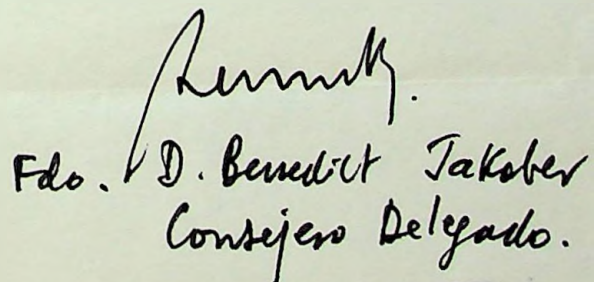 Fdo. D. Benedict Jakober
Consejero Delegado.